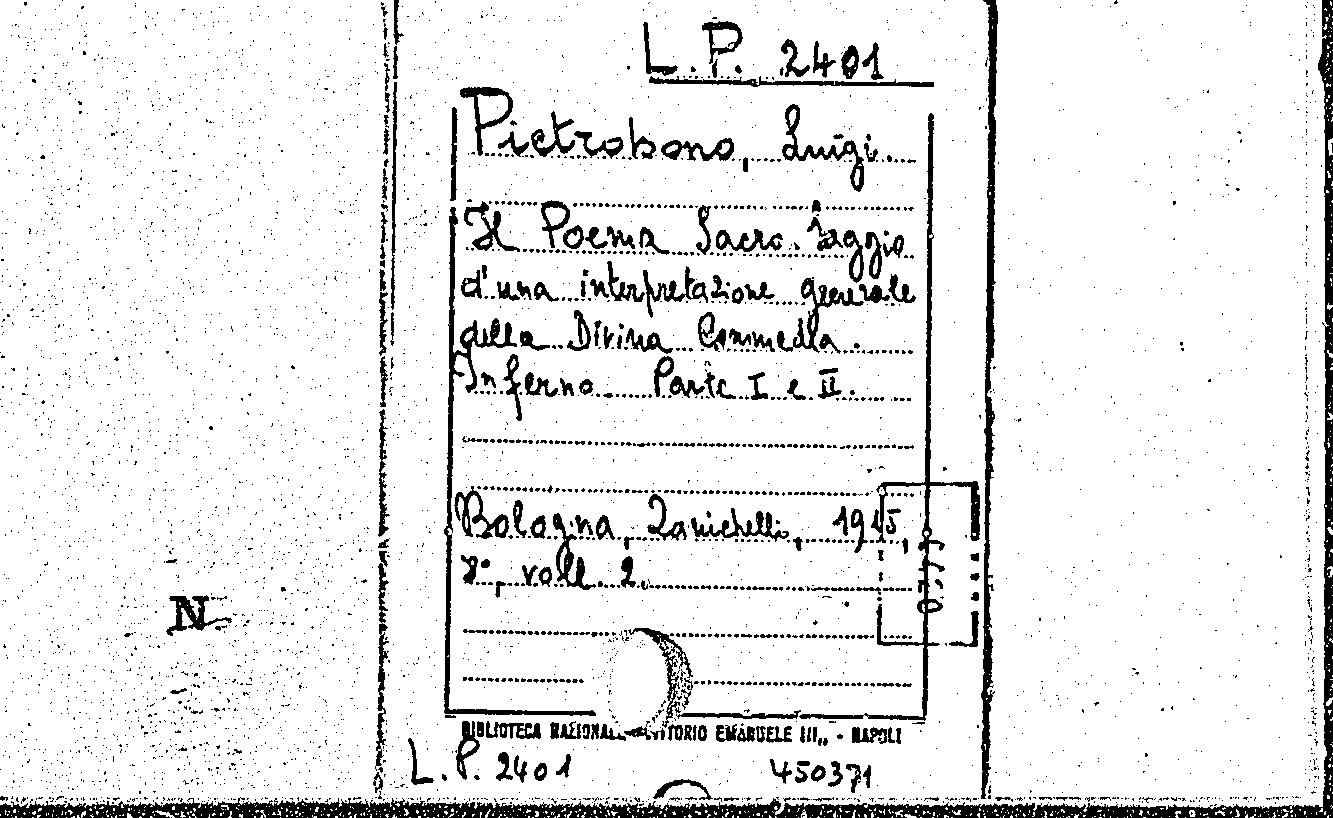 L.P. 2401
Pietrobono, Luigi.
Il Poema Sacro. Saggio
d'una interpretazione generale
della Divina Commedia.
Inferno. Parte I e II.
Bologna, Zanichelli, 1915,
8°, voll. 2.
N
BIBLIOTECA NAZIONALE VITTORIO EMANUELE III" - NAPOLI
L.P. 2401 450371